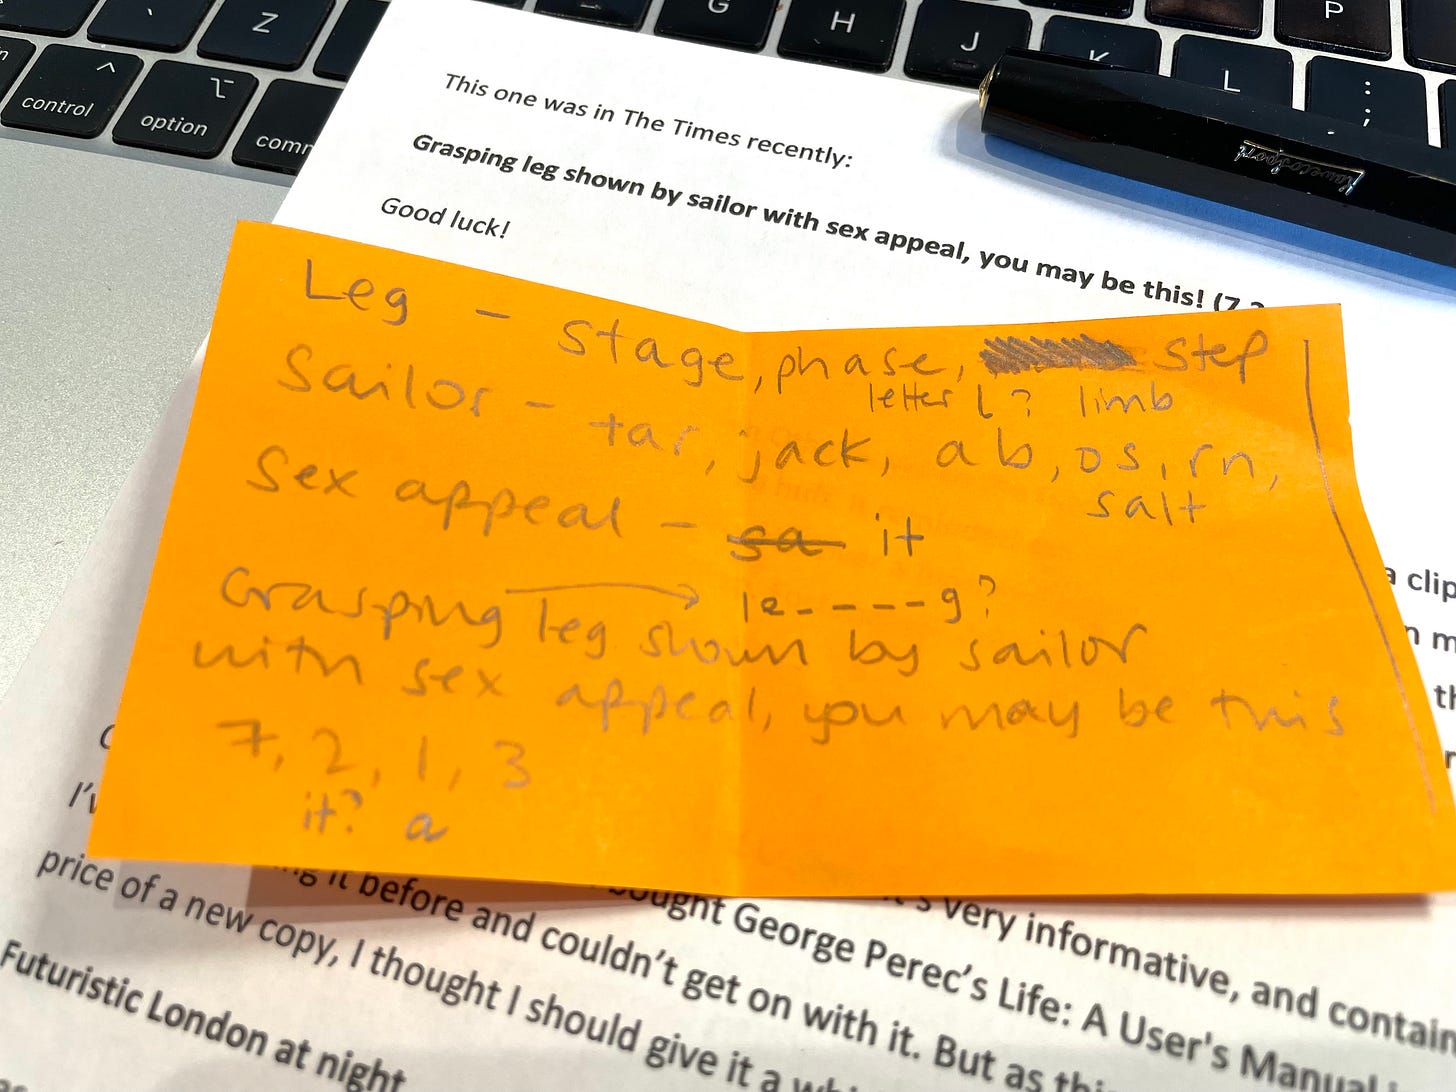 G H J K L P
Z
control option
This one was in The Times recently:
Grasping leg shown by sailor with sex appeal, you may be this! (7,2
Good luck!
Kaweco Sport
Leg - stage, phase, step
letter l? limb
Sailor - tar, jack, ab, os, rn,
salt
Sex appeal - sa it
Grasping → le----g?
leg shown by sailor
with sex appeal, you may be this
7, 2, 1, 3
it? a
a clip
it before and couldn't get on with it. But as
very informative, and contain
bought George Perec's Life: A User's Manual
price of a new copy, I thought I should give it a
Futuristic London at night